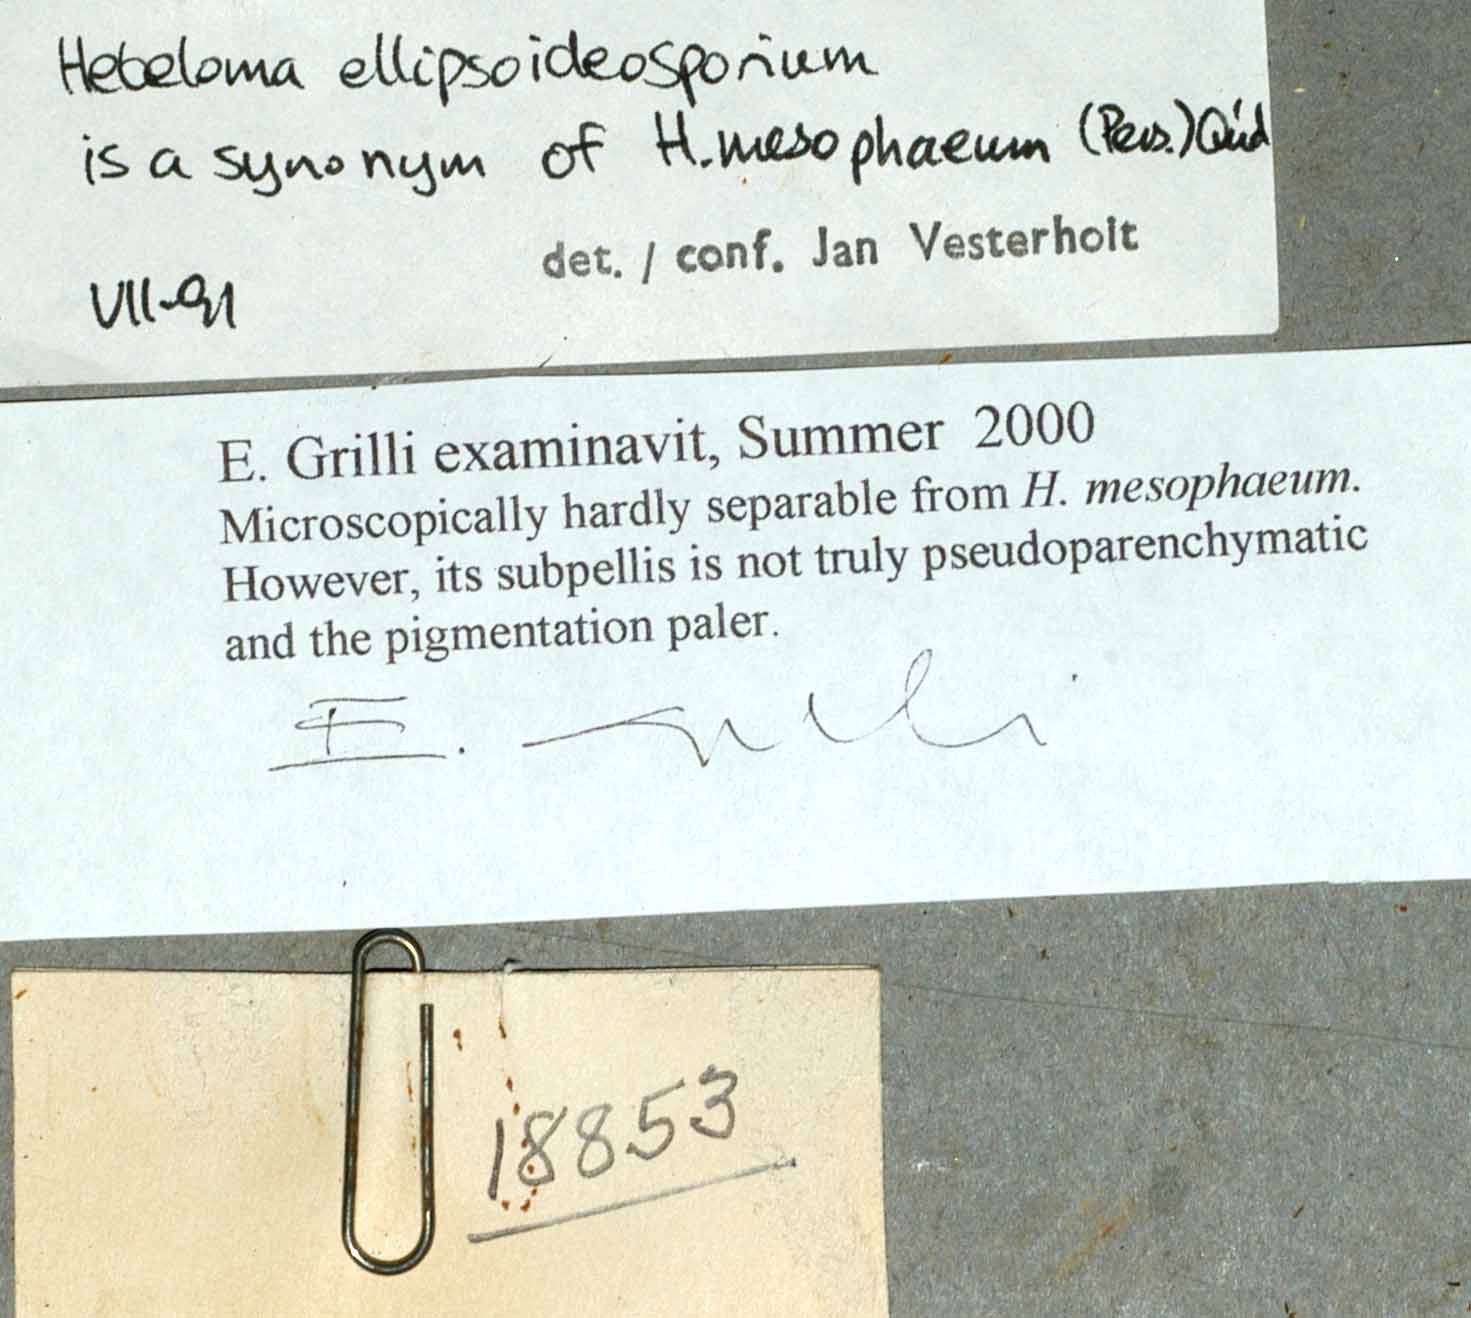 Hebeloma ellipsoideosporium
is a synonym of H. mesophaeum (Pers.) Quél
det. / conf. Jan Vesterholt
VII-91
E. Grilli examinavit, Summer 2000
Microscopically hardly separable from H. mesophaeum.
However, its subpellis is not truly pseudoparenchymatic
and the pigmentation paler.
E. Grilli
18853